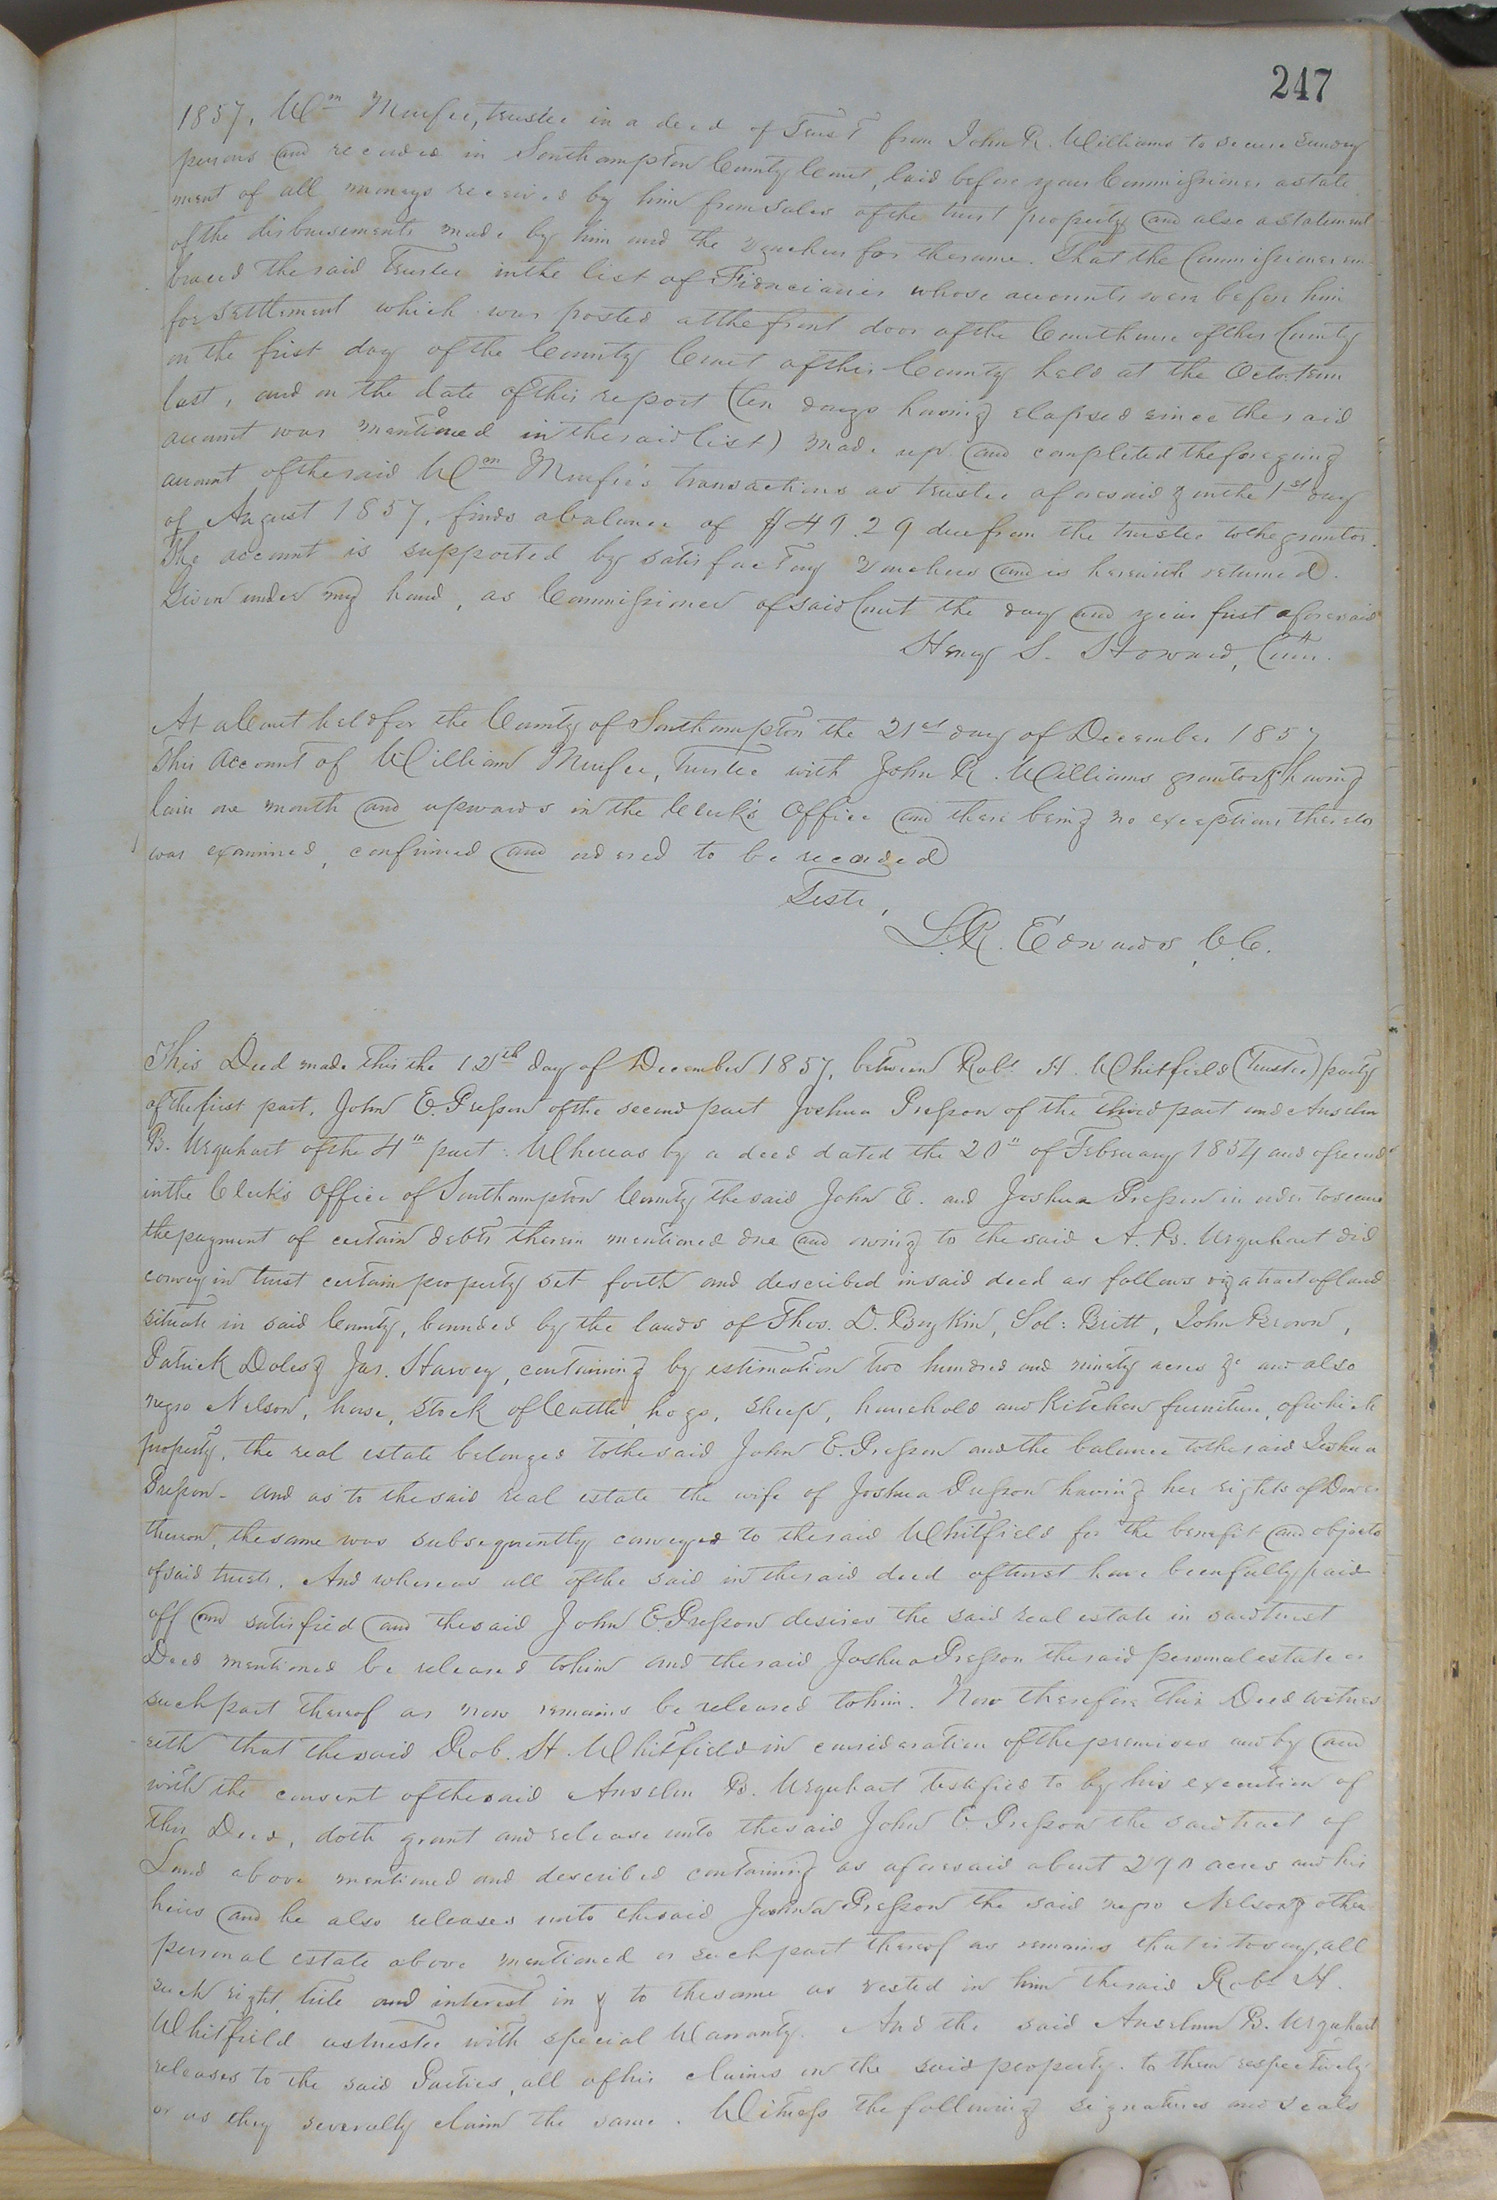 247
1857, Wm Murfee, trustee in a deed of Trust from John R. Williams to secure sundry
persons and recorded in Southampton County Court, laid before your Commissioner a state
ment of all moneys received by him from sales of the trust property and also a statement
of the disbursements made by him and the vouchers for the same. That the Commissioner em
braced the said Trustee in the list of Fiduciaries whose accounts were before him
for settlement which was posted at the front door of the Courthouse of this County
on the first day of the County Court of this County held at the Octo. term
last, and on the date of this report (ten days having elapsed since the said
account was mentioned in the said list) made up and completed the foregoing
account of the said Wm Murfee's transactions as trustee aforesaid & on the 1st day
of August 1857, finds a balance of $49.29 due from the trustee to the grantor.
The account is supported by satisfactory vouchers and is herewith returned.
Given under my hand, as Commissioner of said Court the day and year first aforesaid
Henry S. Howard, Comr.
At a Court held for the County of Southampton the 21st day of December 1857
This Account of William Murfee, Trustee with John R. Williams grantor & having
lain one month and upwards in the Clerk's Office and there being no exceptions thereto
was examined, confirmed and ordered to be recorded
Teste,
L.R. Edwards, C.C.
This Deed made this the 12th day of December 1857, between Robt. H. Whitfield (Trustee) party
of the first part, John E. Presson of the second part Joshua Presson of the third part and Anselm
B. Urquhart of the 4th part: Whereas by a deed dated the 20th of February 1854 and of record
in the Clerk's Office of Southampton County the said John E. and Joshua Presson in order to secure
the payment of certain debts therein mentioned due and owing to the said A. B. Urquhart did
convey in trust certain property set forth and described in said deed as follows viz a tract of land
situate in said County, bounded by the lands of Thos. D. Boykin, Sol: Britt, John Brown,
Patrick Doles & Jas. Harvey, containing by estimation two hundred and ninety acres &c and also
negro Nelson, horse, stock of Cattle, hogs, sheep, household and Kitchen furniture, of which
property, the real estate belonged to the said John E. Presson and the balance to the said Joshua
Presson - and as to the said real estate the wife of Joshua Presson having her rights of Dower
thereon, the same was subsequently conveyed to the said Whitfield for the benefit and objects
of said trust. And whereas all of the said in the said deed of trust have been fully paid
off and satisfied and the said John E. Presson desires the said real estate in said trust
Deed mentioned be released to him and the said Joshua Presson the said personal estate or
such part thereof as now remains be released to him. Now therefore this Deed witnes
seth that the said Rob. H. Whitfield in consideration of the premises and by and
with the consent of the said Anselm B. Urquhart testified to by his execution of
this Deed, doth grant and release unto the said John E Presson the said tract of
Land above mentioned and described containing as aforesaid about 290 acres and his
heirs and he also releases unto the said Joshua Presson the said negro Nelson & other
personal estate above mentioned or such part thereof as remains that is to say, all
such right, title and interest in & to the same as vested in him the said Robt H.
Whitfield as trustee with special Warranty. And the said Anselm B. Urquhart
releases to the said Parties, all of his claims in the said property to them respectively
or as they severally claim the same. Witness the following signatures and seals